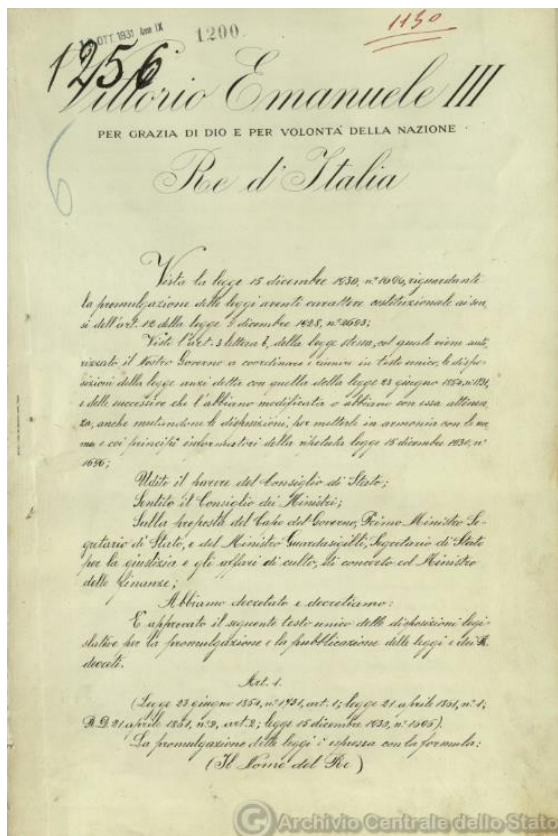 OTT 1931 Anno IX
1200
1150
1256
Vittorio Emanuele III
PER GRAZIA DI DIO E PER VOLONTA' DELLA NAZIONE
Re d'Italia
6
Vista la legge 15 dicembre 1930, n° 1696, riguardante
la promulgazione delle leggi aventi carattere costituzionale ai sen-
si dell'art. 12 della legge 9 dicembre 1928, n° 2693;
Visto l'art. 3 lettera b, della legge stessa, col quale viene auto-
rizzato il Nostro Governo a coordinare e riunire in testo unico, le dispo-
sizioni della legge anzi detta con quella della legge 23 giugno 1854, n° 1731,
e delle successive che l'abbiano modificata o abbiano con essa attinen-
za, anche mutandone le disposizioni, per metterle in armonia con le nor-
me e coi principii informatori della ripetuta legge 15 dicembre 1930, n°
1696;
Udito il parere del Consiglio di Stato;
Sentito il Consiglio dei Ministri;
Sulla proposta del Capo del Governo, Primo Ministro Se-
gretario di Stato, e del Ministro Guardasigilli, Segretario di Stato
per la giustizia e gli affari di culto, di concerto col Ministro
delle finanze;
Abbiamo decretato e decretiamo:
È approvato il seguente testo unico delle disposizioni legi-
slative per la promulgazione e la pubblicazione delle leggi e dei R.
decreti.
Art. 1.
(Legge 23 giugno 1854, n° 1731, art. 1; legge 21 aprile 1861, n° 1;
R.D. 21 aprile 1861, n° 2, art. 2; legge 15 dicembre
La promulgazione delle leggi è espressa con la formula:
(Il Nome del Re)
Archivio Centrale dello Stato